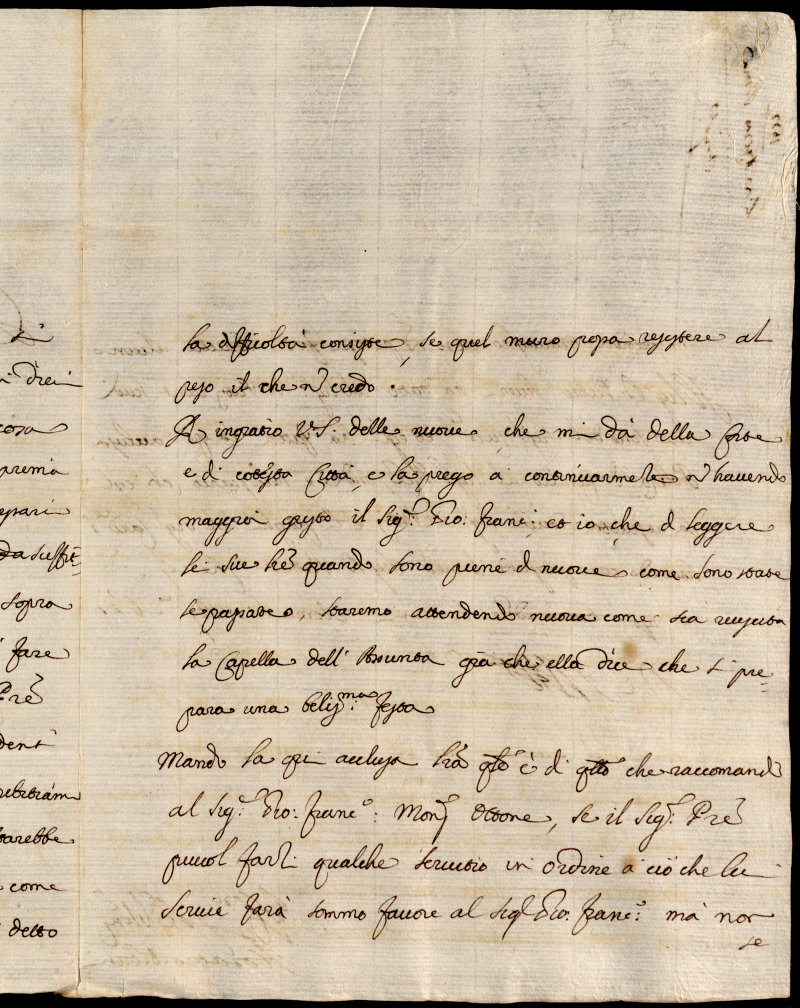 la difficoltà consiste, se quel muro possa resistere al
peso il che nõ credo.
Ringratio V.S. delle nuove, che mi dà della Corte
e di cotesta Città, e la prego a continuarmele nõ havendo
maggior gusto il Sig.r Gio: Franc.o et io, che di leggere
le sue lrẽ quando sono piene di nuove, come sono state
le passate, staremo attendendo nuova come sia riuscita
la Capella dell' Assunta già che ella dice che si pre=
para una beliss.ma festa
Mando la qui acclusa lrã che raccomanda
al Sig.r Gio: Franc.o: Mons.r Ottone, se il Sig.r Prẽ
puuol farli qualche servitio in ordine a ciò che li
scrive farà sommo favore al Sig.r Gio: Franc.o: mà non
se
si
dieci
cosa
premia
sopra
fare
Prẽ
darebbe
come
detto